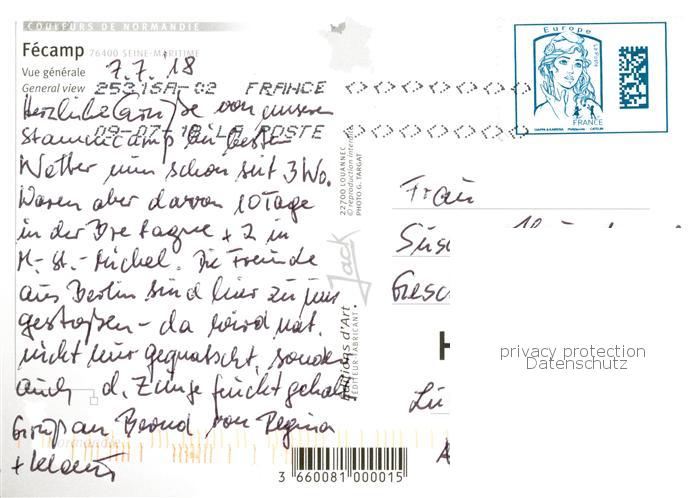 COULEURS DE NORMANDIE
Fécamp 76400 SEINE-MARITIME
Vue générale
General view
7.7.'18
25315A-02 FRANCE
09-07-18 LA POSTE
Herzliche Grüße von unserem
Stammcamp bei bestem
Wetter nun schon seit 3 Wo.
Waren aber davon 10 Tage
in der Bretagne + 2 in
M.-St.-Michel. Die Freunde
aus Berlin sind hier zu uns
gestoßen – da wird nat.
nicht nur gequatscht, sondern
auch d. Zunge feucht gehalt.
Gruß an Bernd von Regina
+ Klaus
22700 LOUANNEC
© reproduction interdite
PHOTO G. TARGAT
Jack
Éditions d'Art
ÉDITEUR-FABRICANT
Normandie
3 660081 000015
Europe
La Poste
FRANCE
Frau
privacy protection
Datenschutz